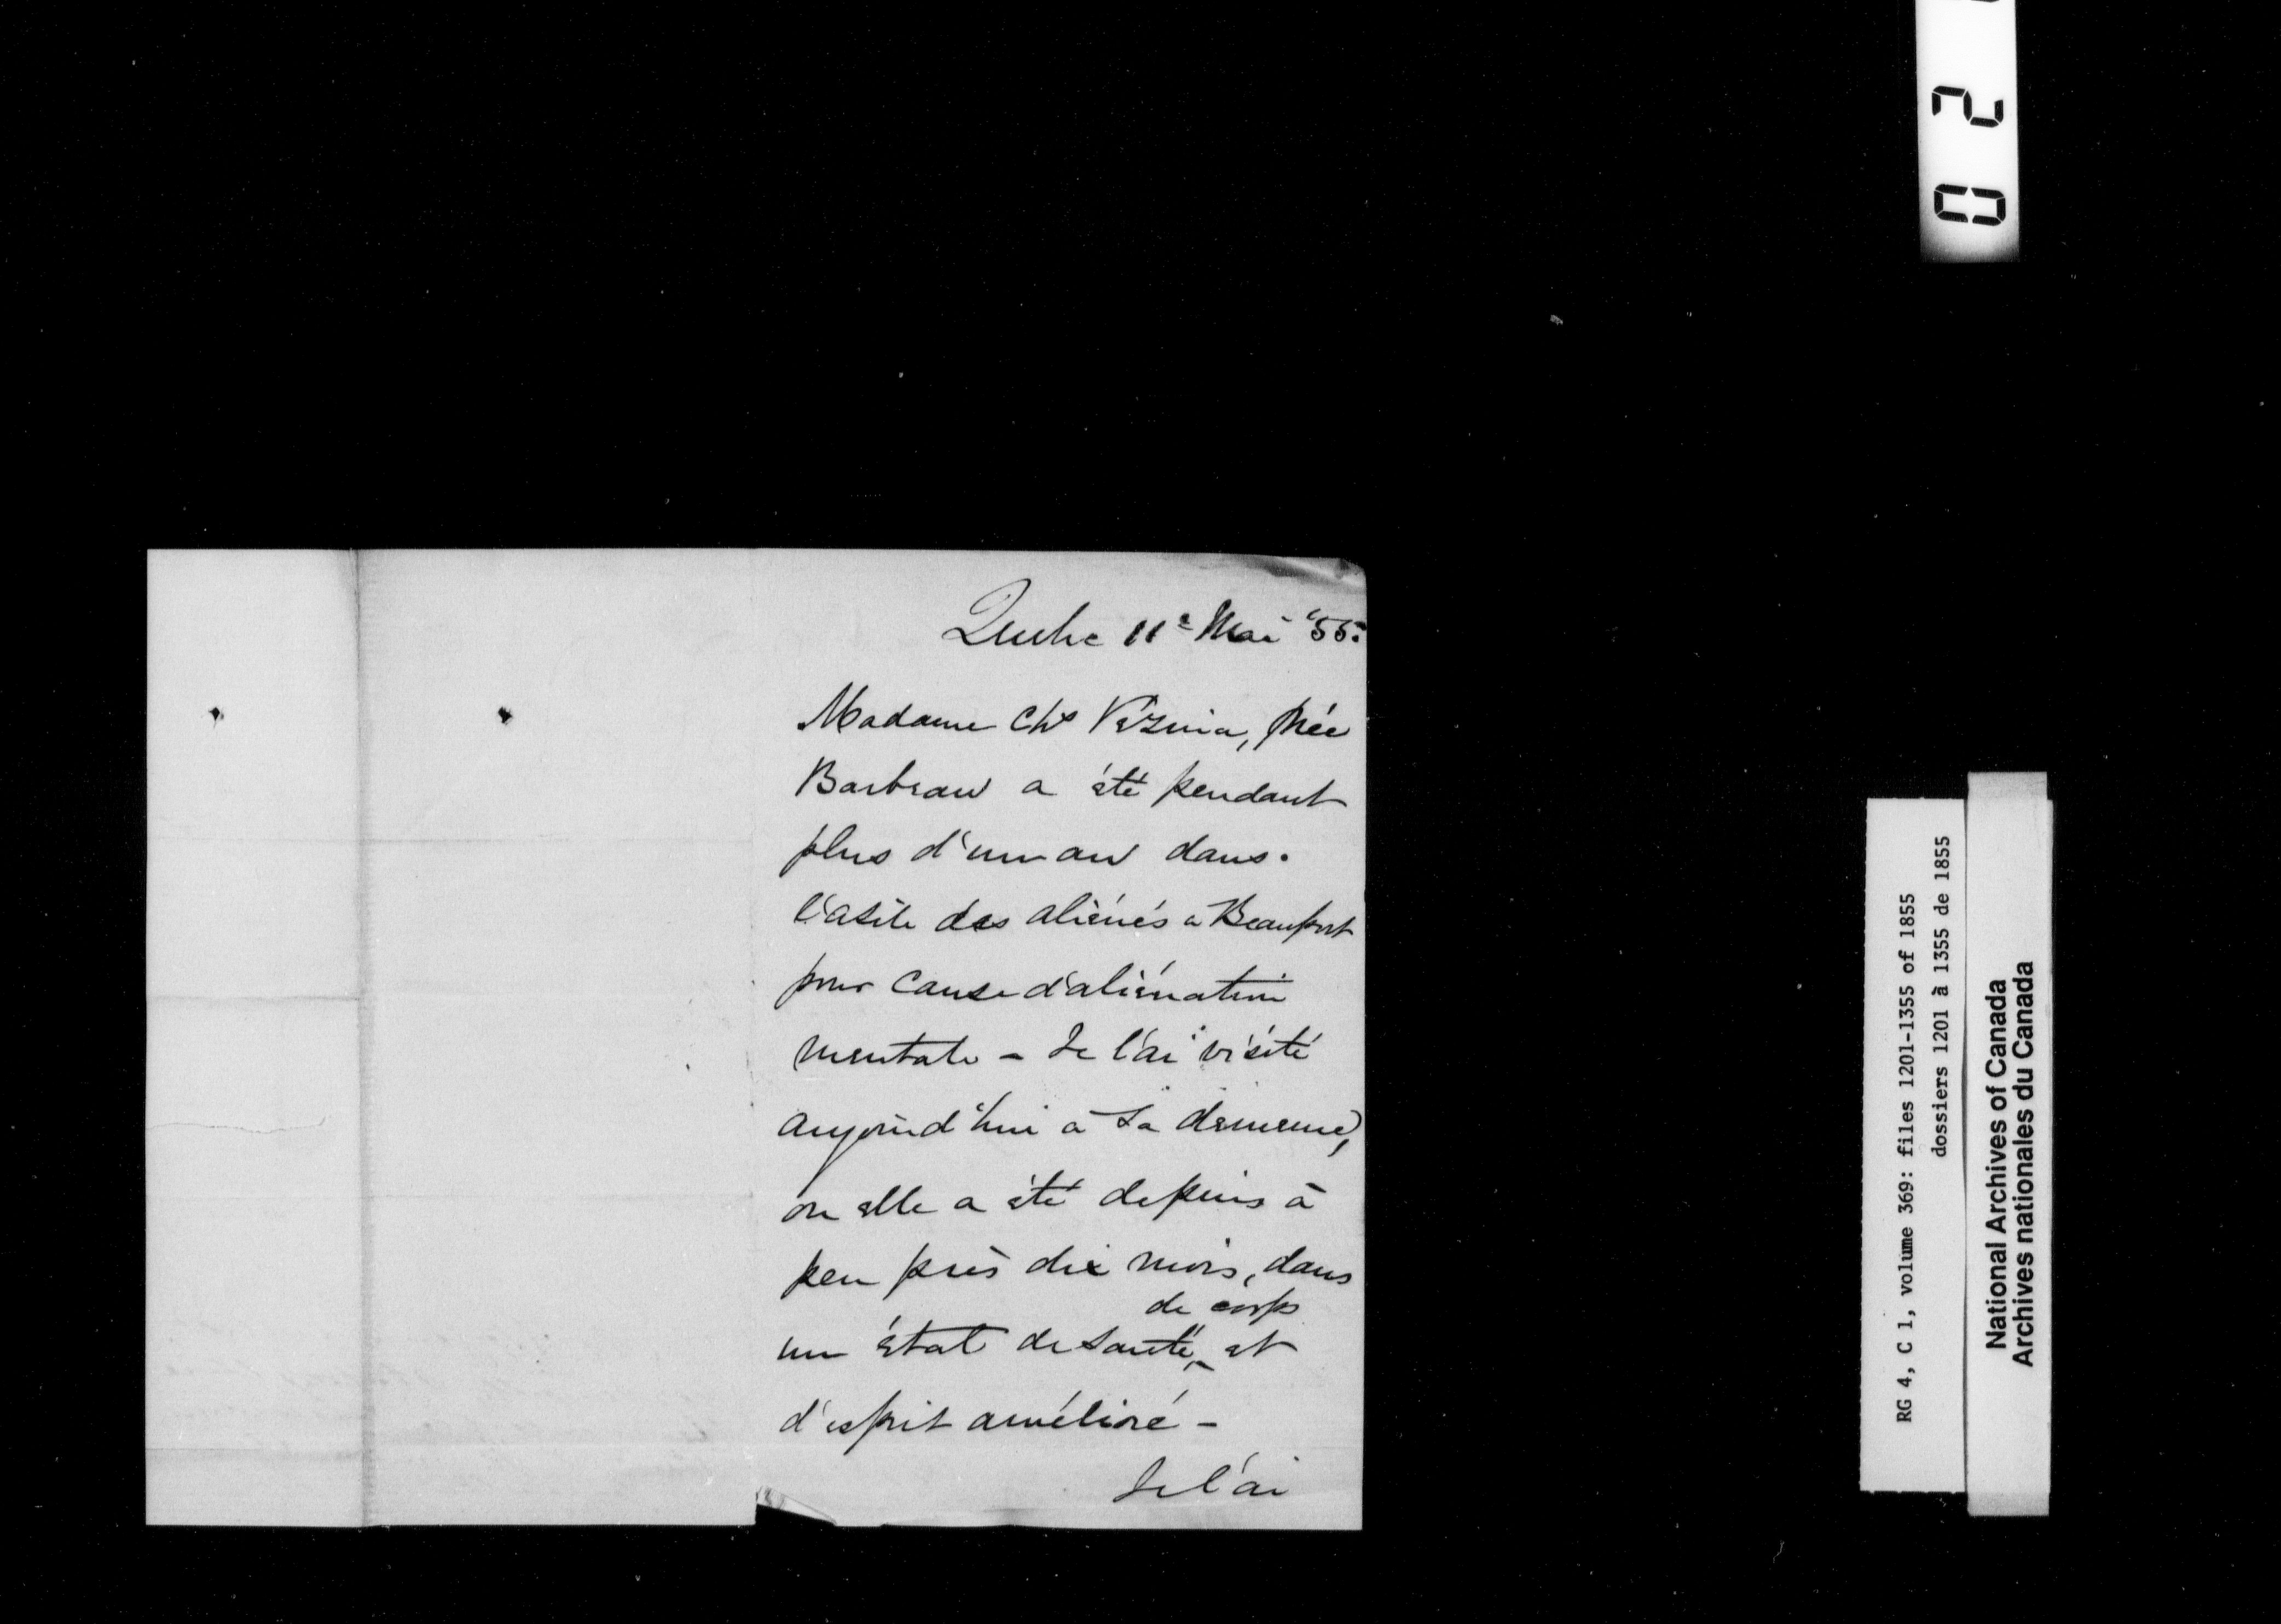 Quebec 11e Mai '55.
Madame Chs Vézina, Née
Barbeau a été pendant
plus d'un an dans
l'asile des aliénés a Beauport
pour cause d'aliénation
mentale - Je l'ai visité
aujourd'hui a sa demeure,
ou elle a été depuis à
peu près dix mois, dans
de corps
un état de santé, et
d'esprit amélioré -
Je l'ai
0 2
RG 4, C 1, volume 369: files 1201-1355 of 1855
dossiers 1201 à 1355 de 1855
National Archives of Canada
Archives nationales du Canada